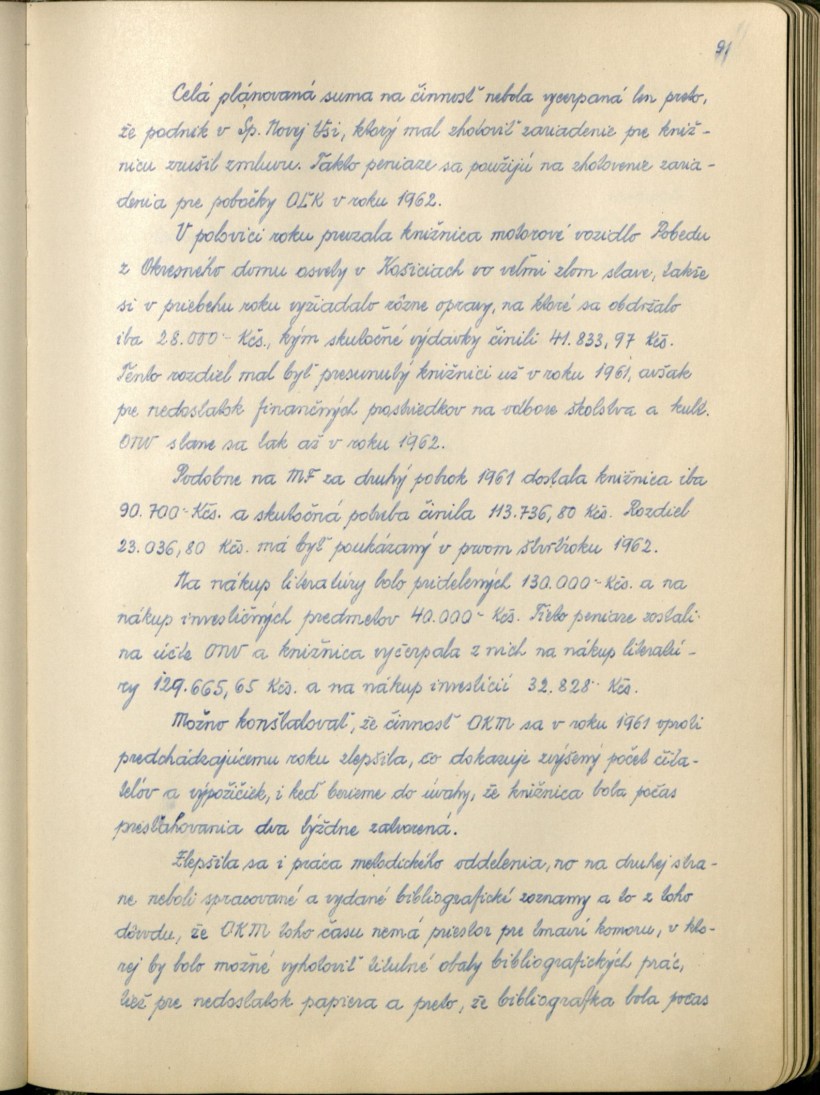 91
Celá plánovaná suma na činnosť nebola vyčerpaná len preto,
že podnik v Sp. Novej Vsi, ktorý mal zhotoviť zariadenie pre kniž-
nicu zrušil zmluvu. Takto peniaze sa použijú na zhotovenie zaria-
denia pre pobočky OĽK v roku 1962.
V polovici roku prevzala knižnica motorové vozidlo Pobedu
z Okresného domu osvety v Košiciach vo veľmi zlom stave, takže
si v priebehu roku vyžiadalo rôzne opravy, na ktoré sa obdržalo
iba 28.000.- Kčs., kým skutočné výdavky činili 41.833,97 Kčs.
Tento rozdiel mal byť presunutý knižnici už v roku 1961, avšak
pre nedostatok finančných prostriedkov na odbore školstva a kult.
ONV stane sa tak až v roku 1962.
Podobne na MF za druhý polrok 1961 dostala knižnica iba
90.700.- Kčs. a skutočná potreba činila 113.736,80 Kčs. Rozdiel
23.036,80 Kčs. má byť poukázaný v prvom štvrťroku 1962.
Na nákup literatúry bolo pridelených 130.000.- Kčs. a na
nákup investičných predmetov 40.000.- Kčs. Tieto peniaze zostali
na účte ONV a knižnica vyčerpala z nich na nákup literatú-
ry 129.665,65 Kčs. a na nákup investícií 32.828.- Kčs.
Možno konštatovať, že činnosť OKM sa v roku 1961 oproti
predchádzajúcemu roku zlepšila, čo dokazuje zvýšený počet čita-
teľov a výpožičiek, i keď berieme do úvahy, že knižnica bola počas
presťahovania dva týždne zatvorená.
Zlepšila sa i práca metodického oddelenia, no na druhej stra-
ne neboli spracované a vydané bibliografické zoznamy a to z toho
dôvodu, že OKM toho času nemá priestor pre tmavú komoru, v kto-
rej by bolo možné vyhotoviť titulné obaly bibliografických prác,
tiež pre nedostatok papiera a preto, že bibliografka bola počas